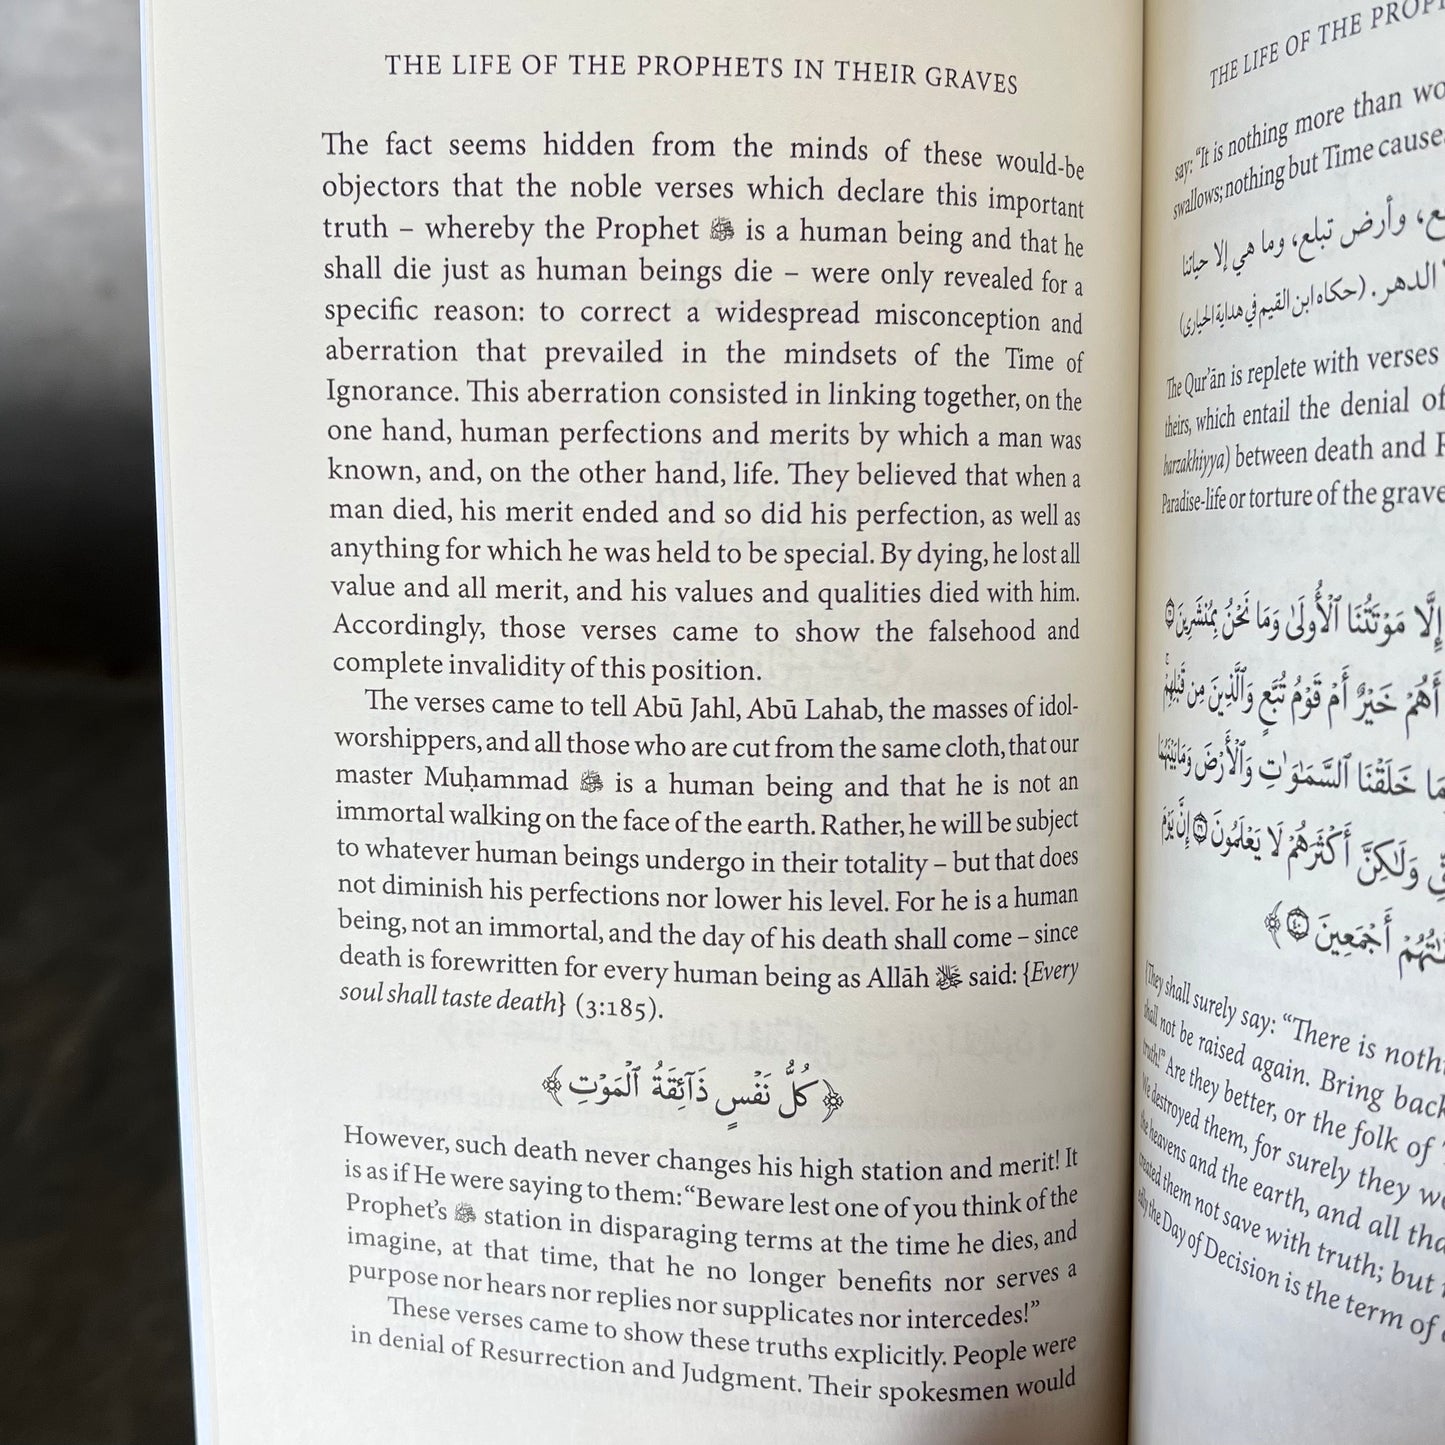 THE LIFE OF THE PROPHETS IN THEIR GRAVES
The fact seems hidden from the minds of these would-be
objectors that the noble verses which declare this important
truth – whereby the Prophet ﷺ is a human being and that he
shall die just as human beings die – were only revealed for a
specific reason: to correct a widespread misconception and
aberration that prevailed in the mindsets of the Time of
Ignorance. This aberration consisted in linking together, on the
one hand, human perfections and merits by which a man was
known, and, on the other hand, life. They believed that when a
man died, his merit ended and so did his perfection, as well as
anything for which he was held to be special. By dying, he lost all
value and all merit, and his values and qualities died with him.
Accordingly, those verses came to show the falsehood and
complete invalidity of this position.
The verses came to tell Abū Jahl, Abū Lahab, the masses of idol-
worshippers, and all those who are cut from the same cloth, that our
master Muḥammad ﷺ is a human being and that he is not an
immortal walking on the face of the earth. Rather, he will be subject
to whatever human beings undergo in their totality – but that does
not diminish his perfections nor lower his level. For he is a human
being, not an immortal, and the day of his death shall come – since
death is forewritten for every human being as Allāh ﷻ said: {Every
soul shall taste death} (3:185).
﴿كُلُّ نَفْسٍ ذَآئِقَةُ ٱلْمَوْتِ﴾
However, such death never changes his high station and merit! It
is as if He were saying to them: “Beware lest one of you think of the
Prophet’s ﷺ station in disparaging terms at the time he dies, and
imagine, at that time, that he no longer benefits nor serves a
purpose nor hears nor replies nor supplicates nor intercedes!”
These verses came to show these truths explicitly. People were
in denial of Resurrection and Judgment. Their spokesmen would
THE LIFE OF THE
say: “It is nothing more than
swallows; nothing but Time
وأرض تبلع، وما هي إلا حياتنا
الدهر. (حكاه ابن القيم في هداية الحيارى)
The Qur’ān is replete with verses
theirs, which entail the denial of
barzakhiyya) between death and
Paradise-life or torture of the grave
إِلَّا مَوْتَتُنَا ٱلْأُولَىٰ وَمَا نَحْنُ بِمُنشَرِينَ
أَهُمْ خَيْرٌ أَمْ قَوْمُ تُبَّعٍ وَٱلَّذِينَ مِن قَبْلِهِمْ
خَلَقْنَا ٱلسَّمَٰوَٰتِ وَٱلْأَرْضَ وَمَا بَيْنَهُمَا
وَلَٰكِنَّ أَكْثَرَهُمْ لَا يَعْلَمُونَ ٣٩ إِنَّ يَوْمَ
أَجْمَعِينَ ٤٠﴾
{They shall surely say: “There is
shall not be raised again. Bring
truth!” Are they better, or the folk of
We destroyed them, for surely they
the heavens and the earth, and all
created them not save with truth; but
the Day of Decision is the term of